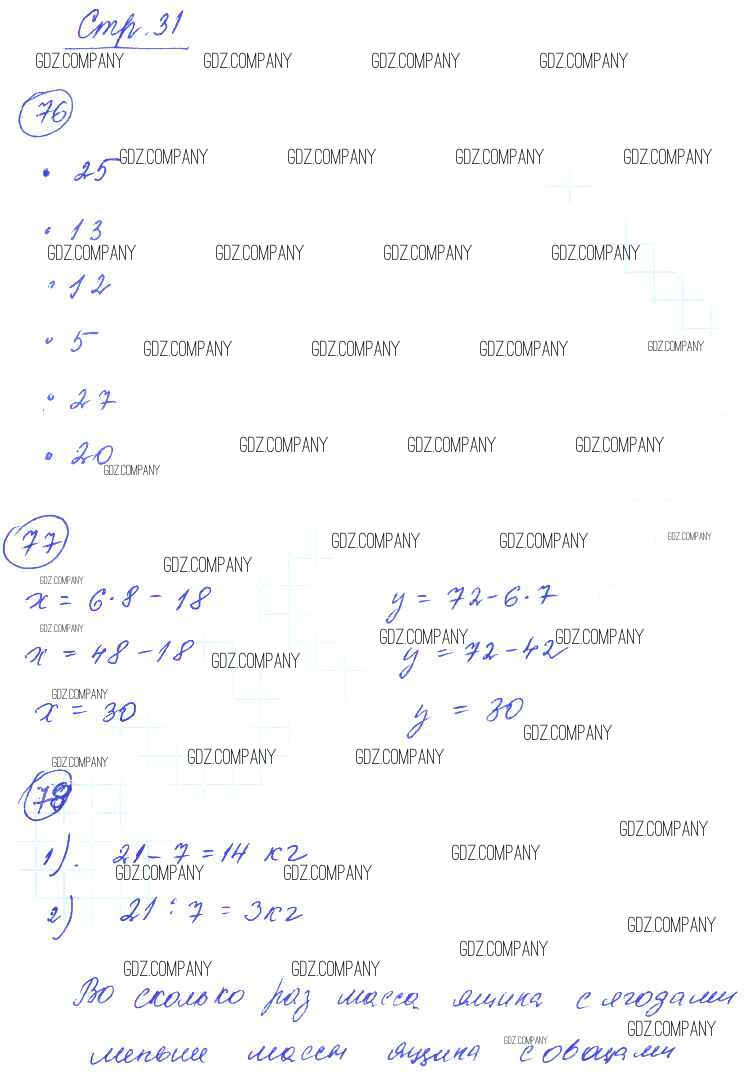 Стр. 31
GDZ.COMPANY GDZ.COMPANY GDZ.COMPANY GDZ.COMPANY
76
GDZ.COMPANY GDZ.COMPANY GDZ.COMPANY GDZ.COMPANY
• 25
• 13
GDZ.COMPANY GDZ.COMPANY GDZ.COMPANY GDZ.COMPANY
• 12
• 5
GDZ.COMPANY GDZ.COMPANY GDZ.COMPANY GDZ.COMPANY
• 27
GDZ.COMPANY GDZ.COMPANY GDZ.COMPANY
• 20
GDZ.COMPANY
77
GDZ.COMPANY GDZ.COMPANY GDZ.COMPANY
GDZ.COMPANY
GDZ.COMPANY
x = 6·8 - 18 y = 72-6·7
GDZ.COMPANY
GDZ.COMPANY GDZ.COMPANY
x = 48 - 18 y = 72 - 42
GDZ.COMPANY
GDZ.COMPANY
x = 30 y = 30
GDZ.COMPANY
GDZ.COMPANY GDZ.COMPANY GDZ.COMPANY
78
GDZ.COMPANY
1). 21 - 7 = 14 кг
GDZ.COMPANY
GDZ.COMPANY GDZ.COMPANY
2) 21 : 7 = 3кг
GDZ.COMPANY
GDZ.COMPANY
GDZ.COMPANY GDZ.COMPANY
Во сколько раз масса ящика с ягодами
GDZ.COMPANY
GDZ.COMPANY
меньше массы ящика с овощами